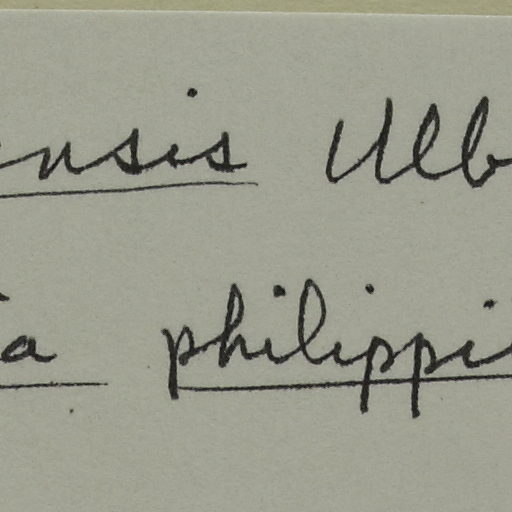 ensis Ulb
ia philippi